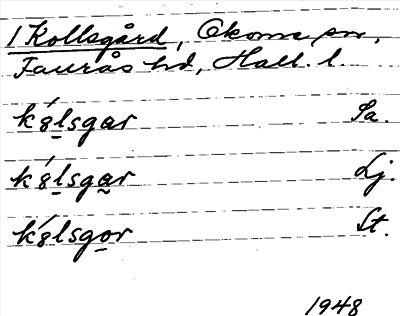 1 Kollsgård, Okome sn,
Faurås hd, Hall. l.
k´8l̲sgar Sa.
k´8l̲sga̰r Lj.
k´8lsgo̲r St.
1948